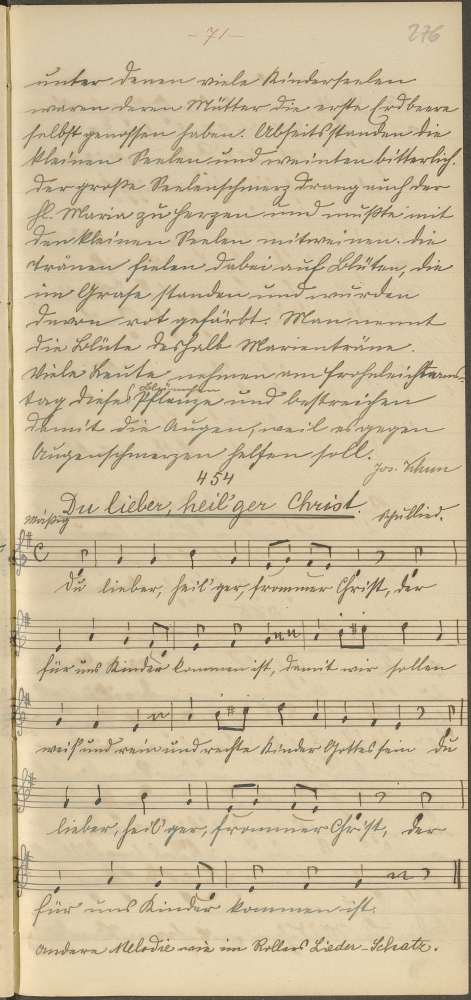 - 71 -
276
unter denen viele Kinderseelen
waren deren Mütter die erste Erdbeere
selbst genossen haben. Abseits standen die
kleinen Seelen und weinten bitterlich.
Der große Seelenschmerz drang auch der
hl. Maria zu Herzen und mußte mit
den kleinen Seelen mitweinen. Die
Tränen fielen dabei auf Blüten, die
im Grase standen und wurden
davon rot gefärbt. Man nennt
die Blüte deshalb Marienträne.
Viele Leute nehmen am Frohnleichnams-
Blümchen
tag dieses Pflanze und bestreichen
damit die Augen, weil es gegen
Augenschmerzen helfen soll.
Jos.
454
Mäßig Du lieber, heil'ger Christ. Schullied.
C
Du lieber, heil'ger, frommer Christ, der
für uns Kinder kommen ist, damit wir sollen
weiß und rein und rechte Kinder Gottes sein Du
lieber, heil'ger, frommer Christ, der
für uns Kinder kommen ist.
Andere Melodie wie im Rollers Lieder-Schatz.